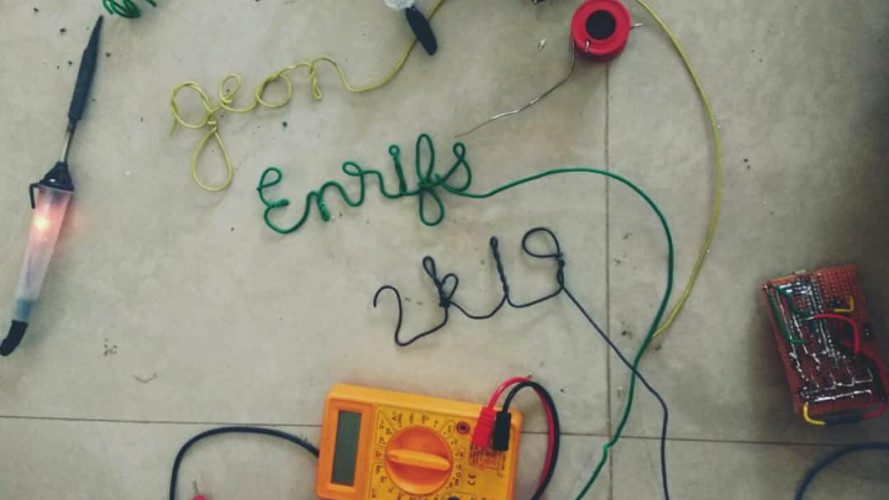 gen
Enrifs
2k19